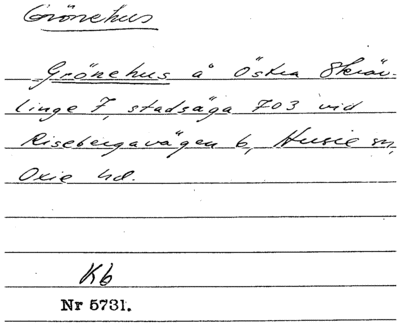 Grönehus
Grönehus å Östra Skräv-
linge 7, stadsäga 703 vid
Risebergavägen 6, Husie sn,
Oxie hd.
Kb
Nr 5731.